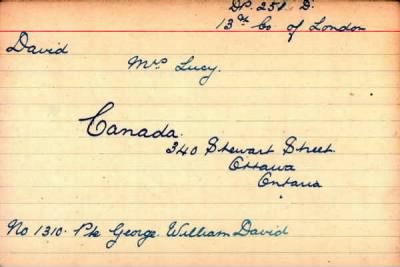 DP. 251. D.
13th Co of London
David
Mrs Lucy.
Canada.
340 Stewart Street.
Ottawa
Ontario
No 1310. Pte George. William David